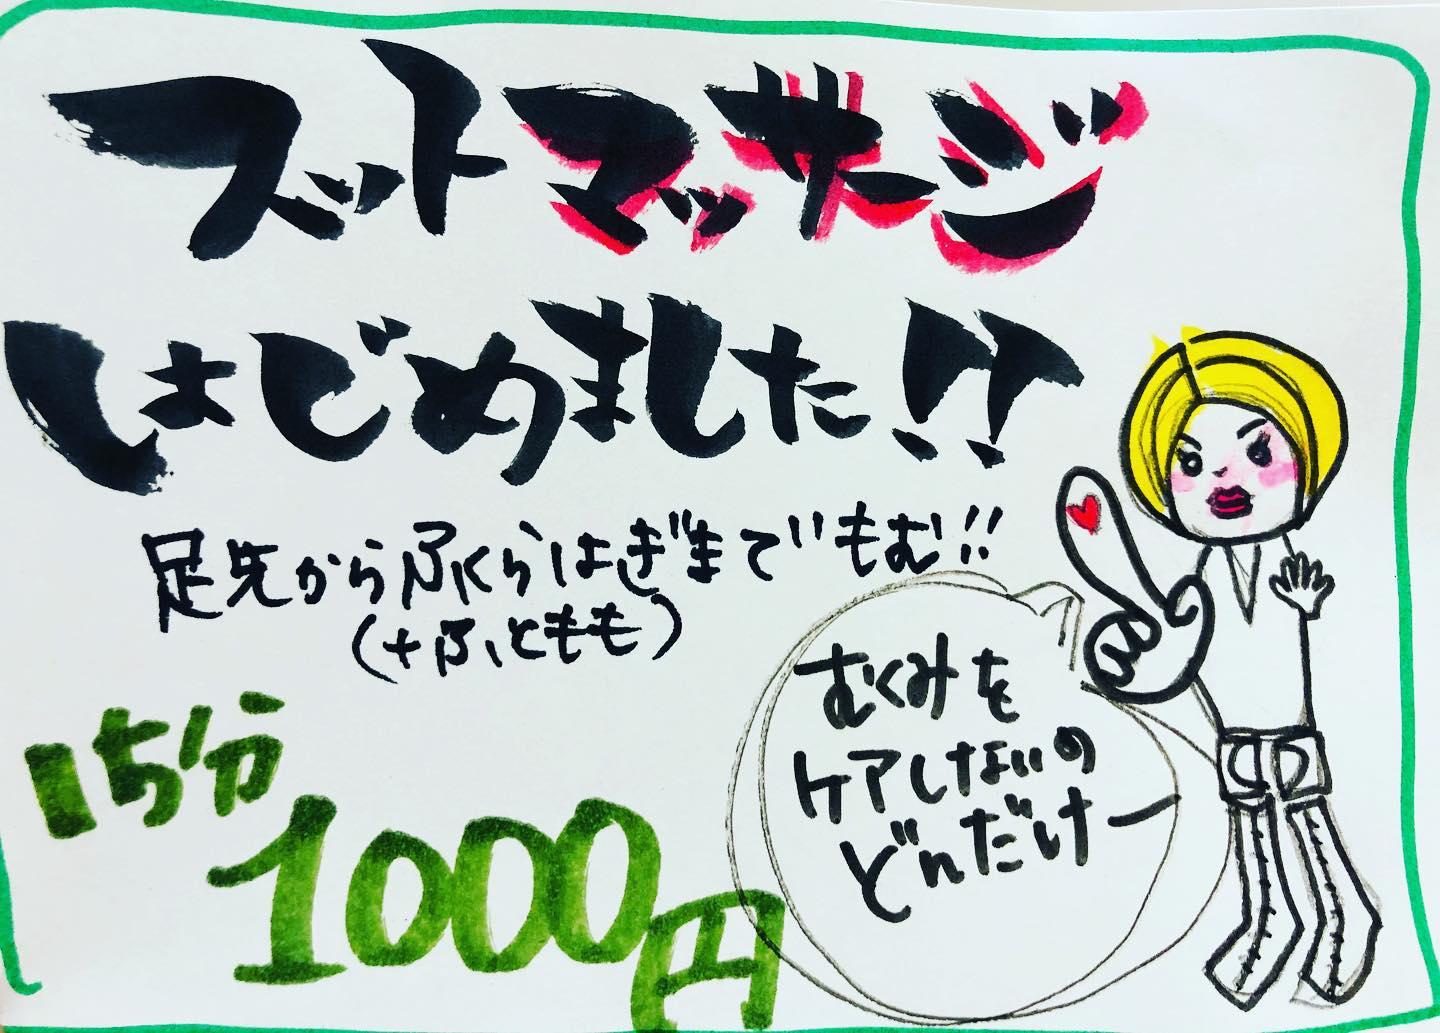 フットマッサージ
はじめました!!
足先からふくらはぎまでもむ!!
(+ふともも)
15分
1000円
むくみを
ケアしないの
どんだけー